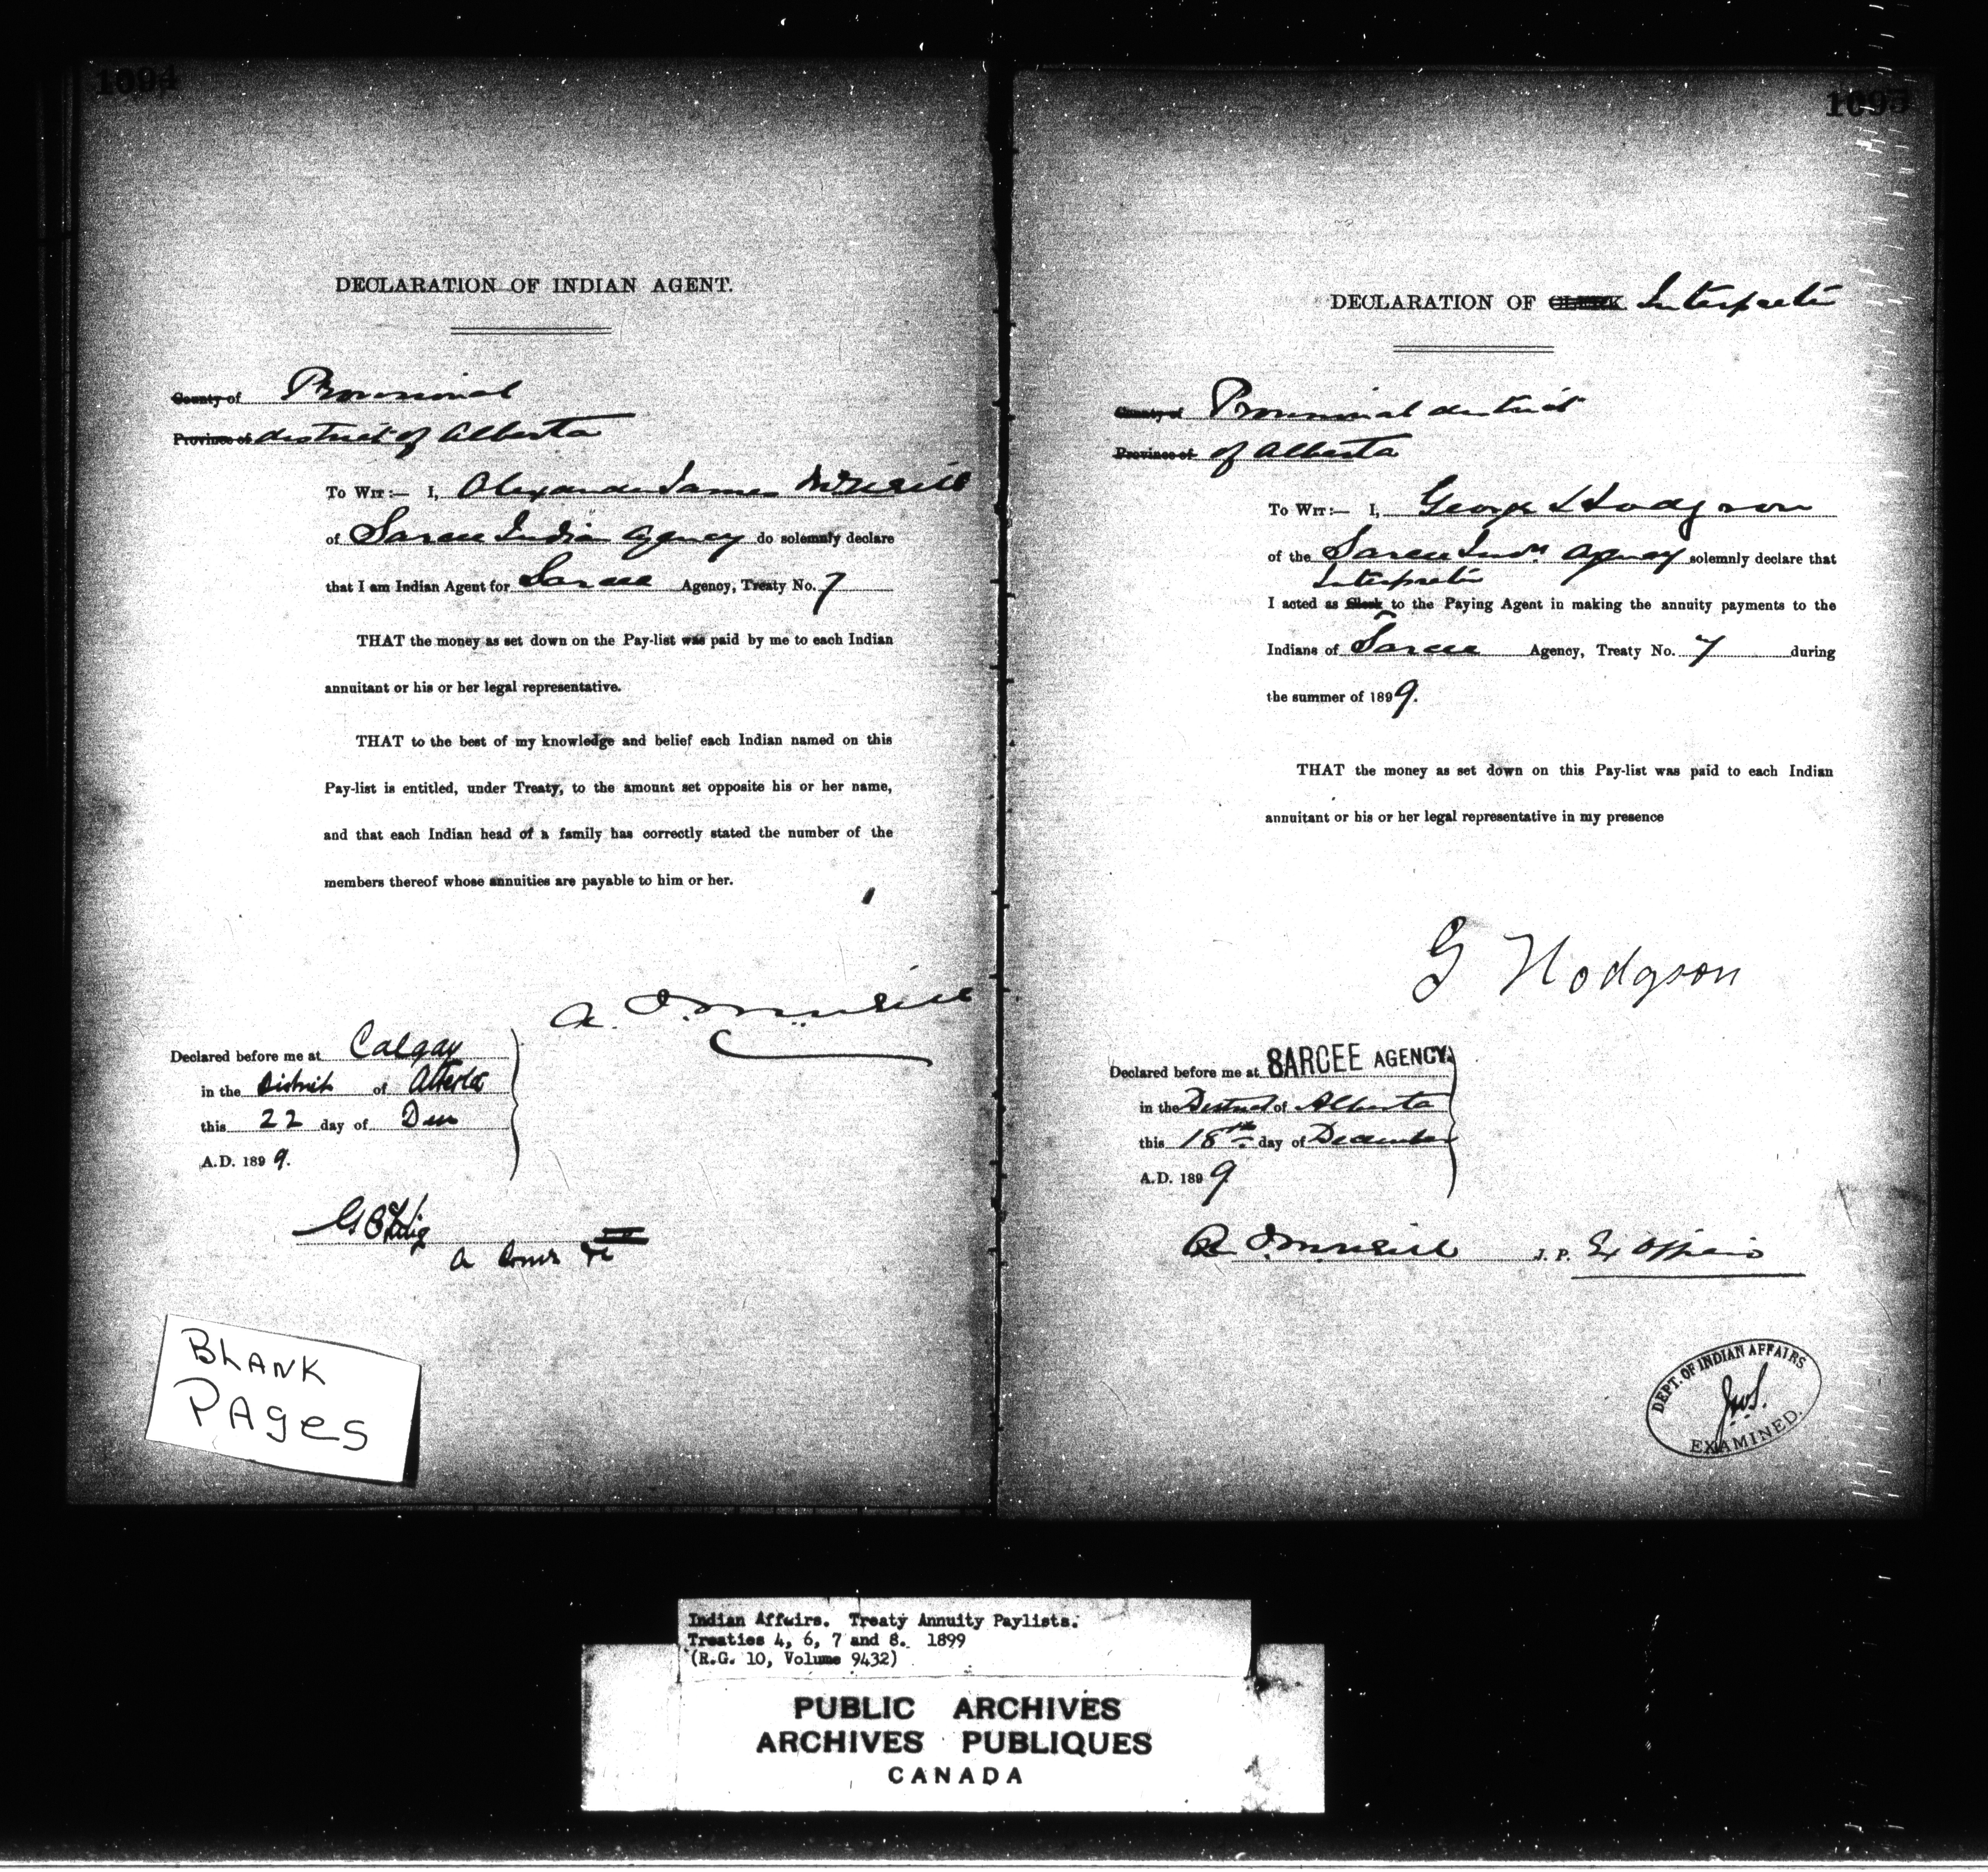 1094
DECLARATION OF INDIAN AGENT.
County of Provisional
Province of district of Alberta
To Wit:— I, Alexander James McNeill
of Sarcee Indian Agency do solemnly declare
that I am Indian Agent for Sarcee Agency, Treaty No. 7
THAT the money as set down on the Pay-list was paid by me to each Indian
annuitant or his or her legal representative.
THAT to the best of my knowledge and belief each Indian named on this
Pay-list is entitled, under Treaty, to the amount set opposite his or her name,
and that each Indian head of a family has correctly stated the number of the
members thereof whose annuities are payable to him or her.
A. J. McNeill
Declared before me at Calgary
in the District of Alberta
this 22 day of Dec
A.D. 1899.
a Comr
BLANK
PAges
1095
DECLARATION OF CLERK Interpreter
County of Provisional district
Province of of Alberta
To Wit:— I, George Hodgson
of the Sarcee Indn Agency solemnly declare that
Interpreter
I acted as Clerk to the Paying Agent in making the annuity payments to the
Indians of Sarcee Agency, Treaty No. 7 during
the summer of 1899.
THAT the money as set down on this Pay-list was paid to each Indian
annuitant or his or her legal representative in my presence
G Hodgson
Declared before me at SARCEE AGENCY
in the District of Alberta
this 18th day of December
A.D. 1899
A. J. McNeill J. P. Ex Officio
DEPT. OF INDIAN AFFAIRS
J.W.S.
EXAMINED.
Indian Affairs. Treaty Annuity Paylists.
Treaties 4, 6, 7 and 8. 1899
(R.G. 10, Volume 9432)
PUBLIC ARCHIVES
ARCHIVES PUBLIQUES
CANADA